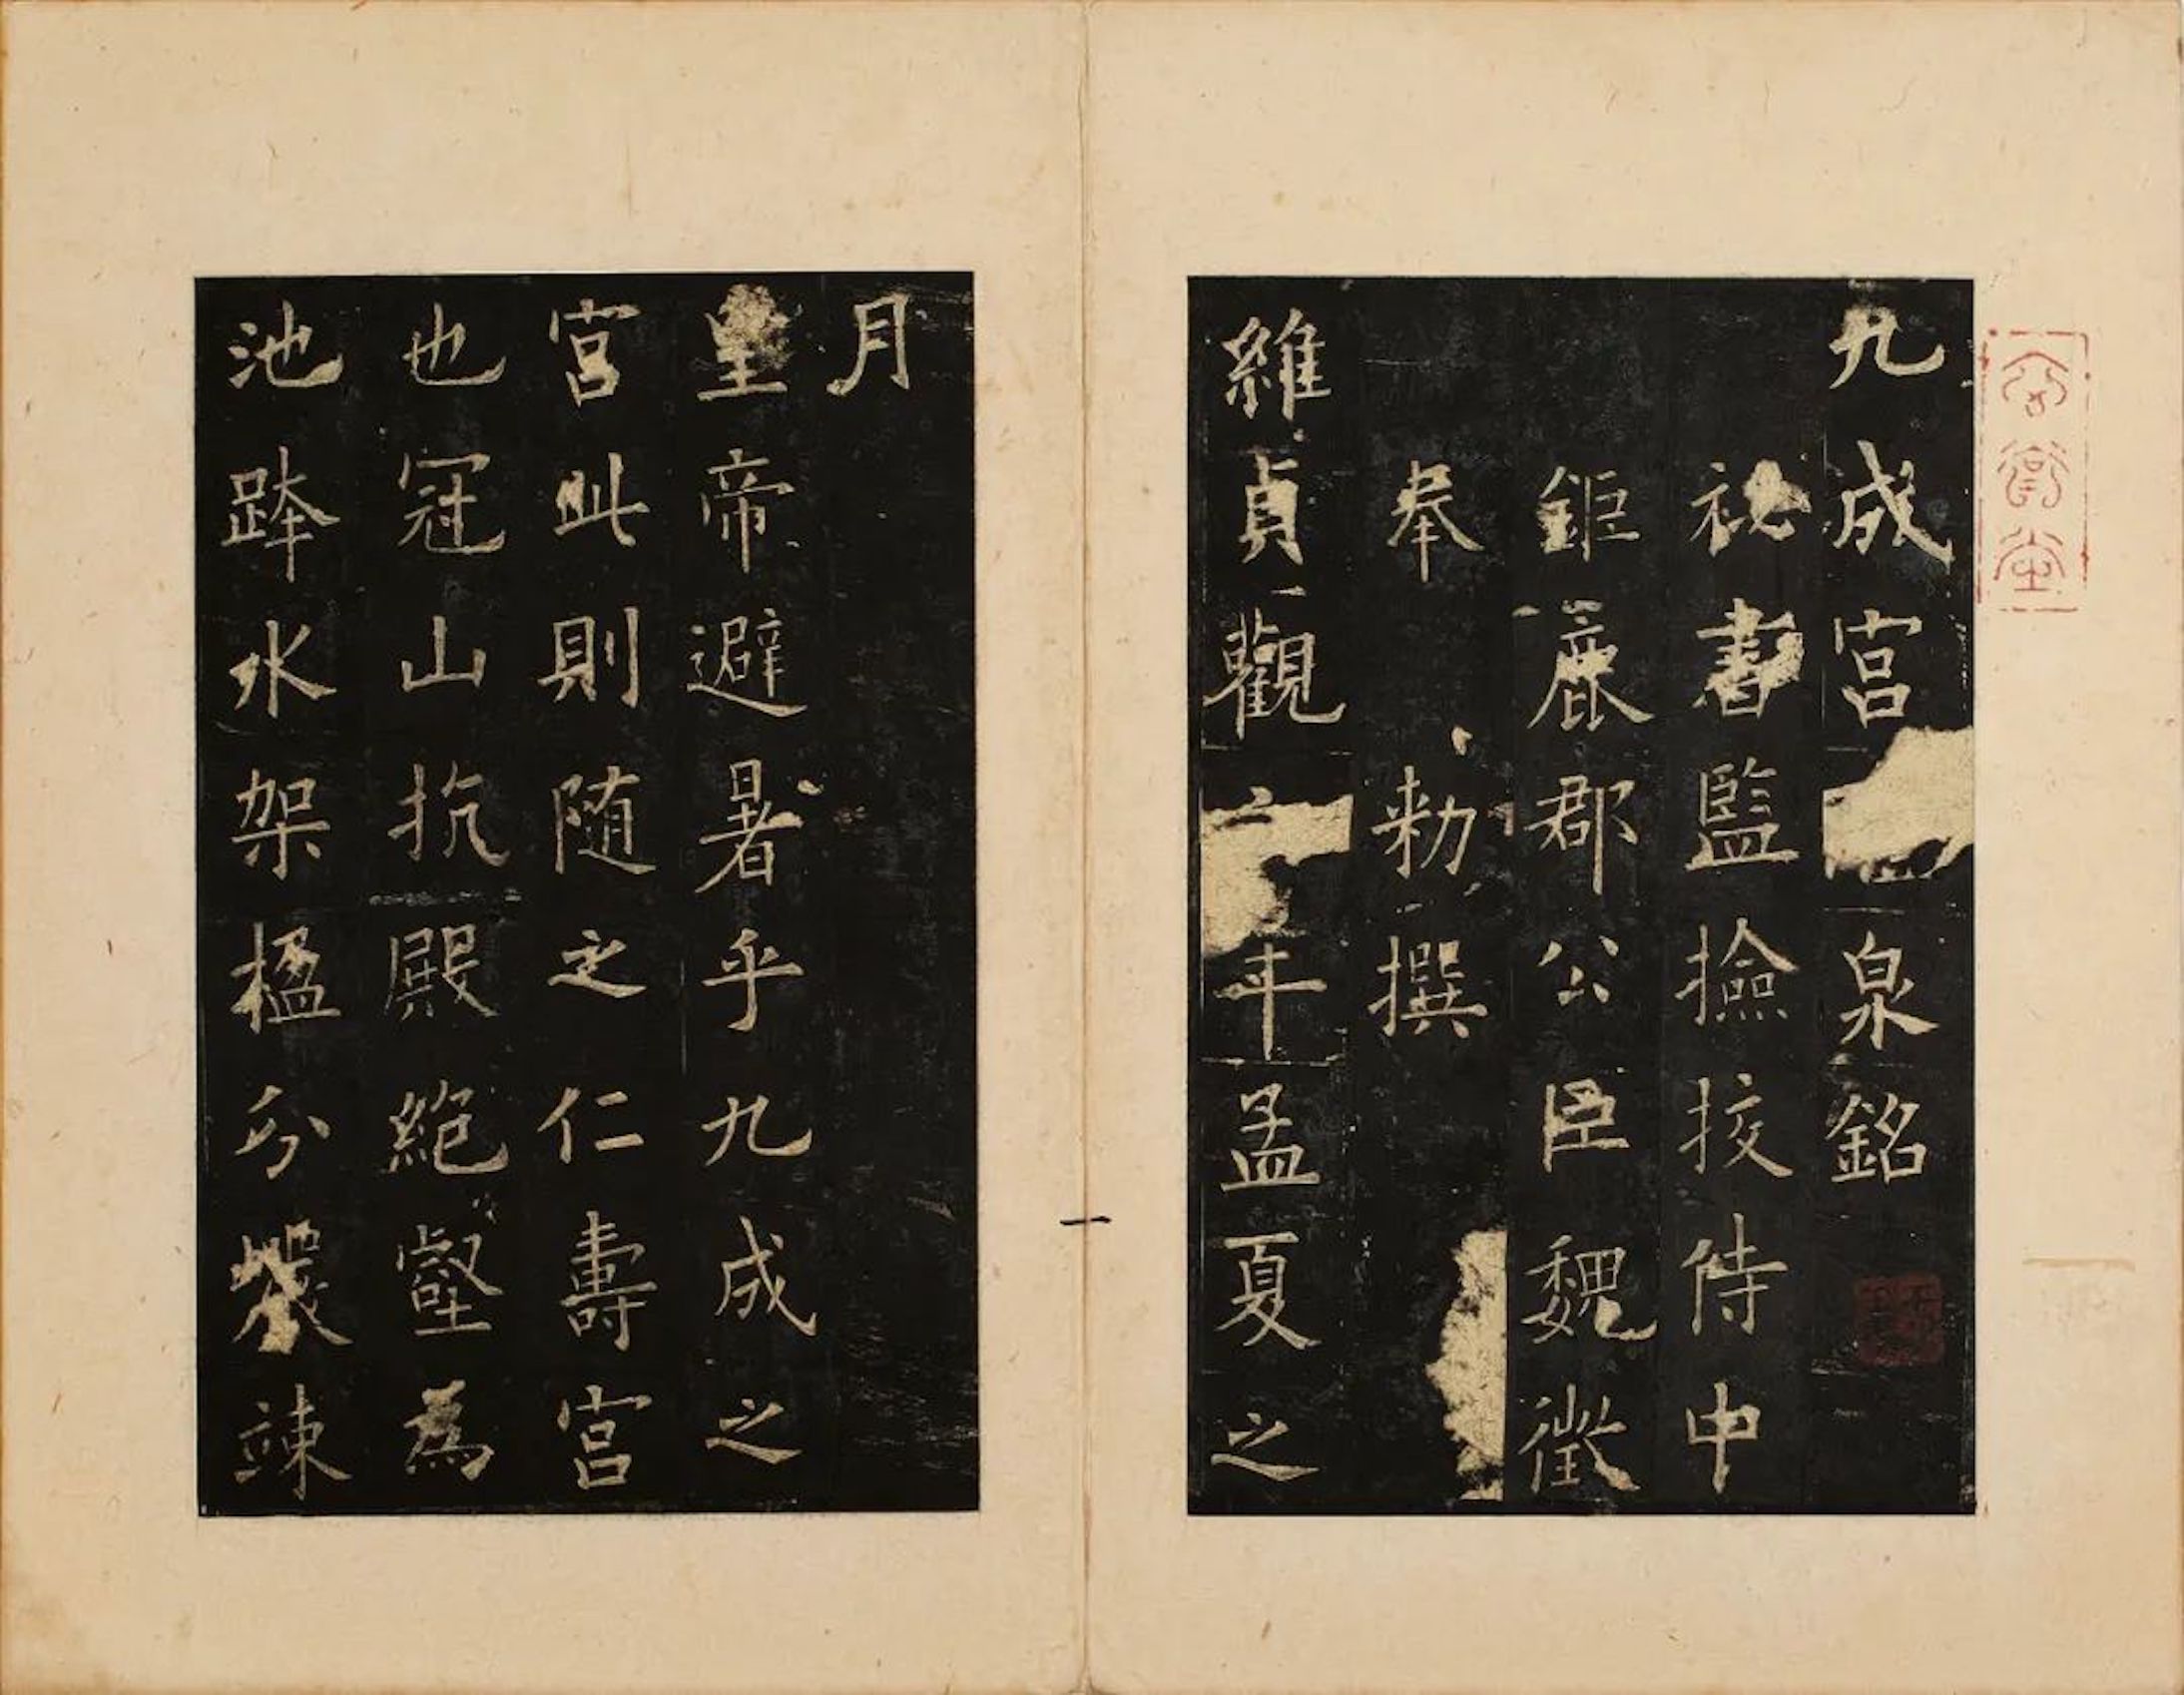 九成宮泉銘
祕書監撿挍侍中
鉅鹿郡公臣魏徵
奉勑撰
維貞觀六年孟夏之
月
皇帝避暑乎九成之
宮此則随之仁壽宮
也冠山抗殿絕壑為
池跨水架楹分巖竦